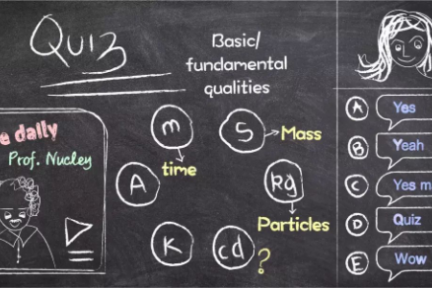 Quiz
Basic/
fundamental
qualities
e daily
Prof. Nucley
m
time
S
Mass
A
kg
Particles
K
cd
?
A
Yes
B
Yeah
C
Yes m
D
Quiz
E
Wow